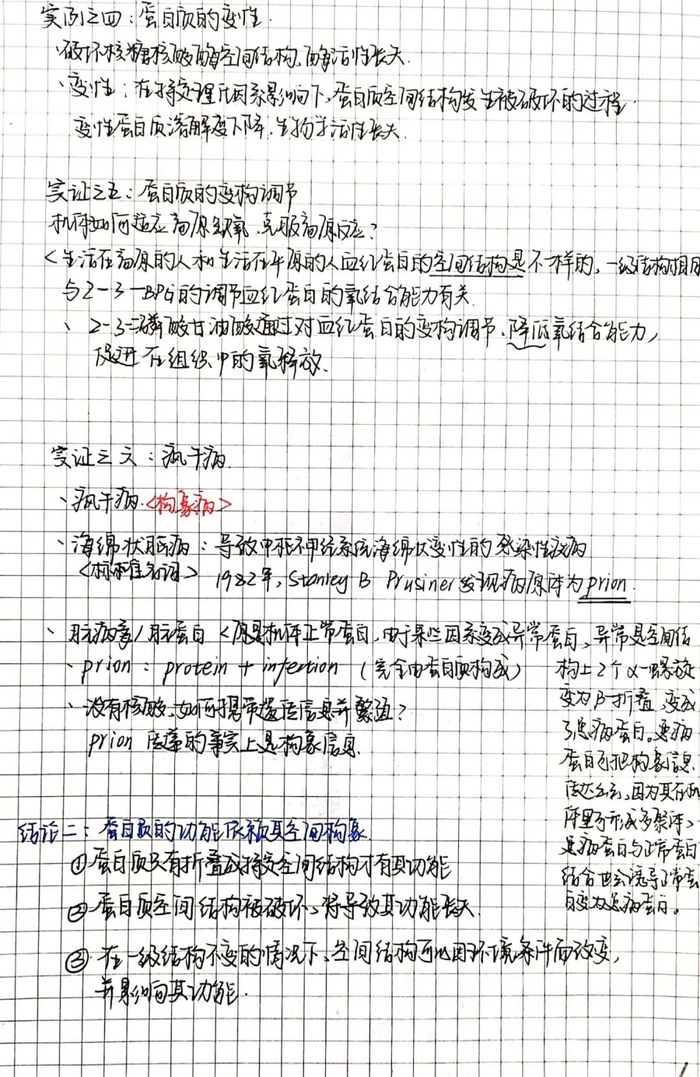 实例之四：蛋白质的变性.
·破坏核糖核酸酶空间结构，酶活性丧失.
·变性：在特定理化因素影响下，蛋白质空间结构发生被破坏的过程.
变性蛋白质溶解度下降.生物学活性丧失.
实证之五：蛋白质的变构调节
机体如何适应高原缺氧，克服高原反应？
<生活在高原的人和生活在平原的人血红蛋白的空间结构是不一样的，一级结构相同
与2-3-BPG的调节血红蛋白的氧结合能力有关.
、2-3-二磷酸甘油酸通过对血红蛋白的变构调节、降低氧结合能力，
促进在组织中的氧释放.
实证之六：疯牛病
、疯牛病.<构象病>
·海绵状脑病：导致中枢神经系统海绵状变性的感染性疾病
1982年，Stanley B Prusiner发现病原体为prion.
、朊病毒/朊蛋白<原是机体正常蛋白，由于某些因素变成异常蛋白，异常是空间结
构上2个α-螺旋
变为β-折叠，变成
了患病蛋白。患病
蛋白可把构象信息
、prion：protein + infection（完全由蛋白质构成）
、没有核酸.如何携带遗传信息并繁殖？
prion 传递的事实上是构象信息.
患病蛋白与正常蛋白
结合也会诱导正常蛋
白变为患病蛋白。
结论二：蛋白质的功能依赖其空间构象
①蛋白质只有折叠成特定空间结构才有其功能
②蛋白质空间结构被破坏、将导致其功能丧失.
③在一级结构不变的情况下、空间结构可以因环境条件而改变，
并影响其功能.